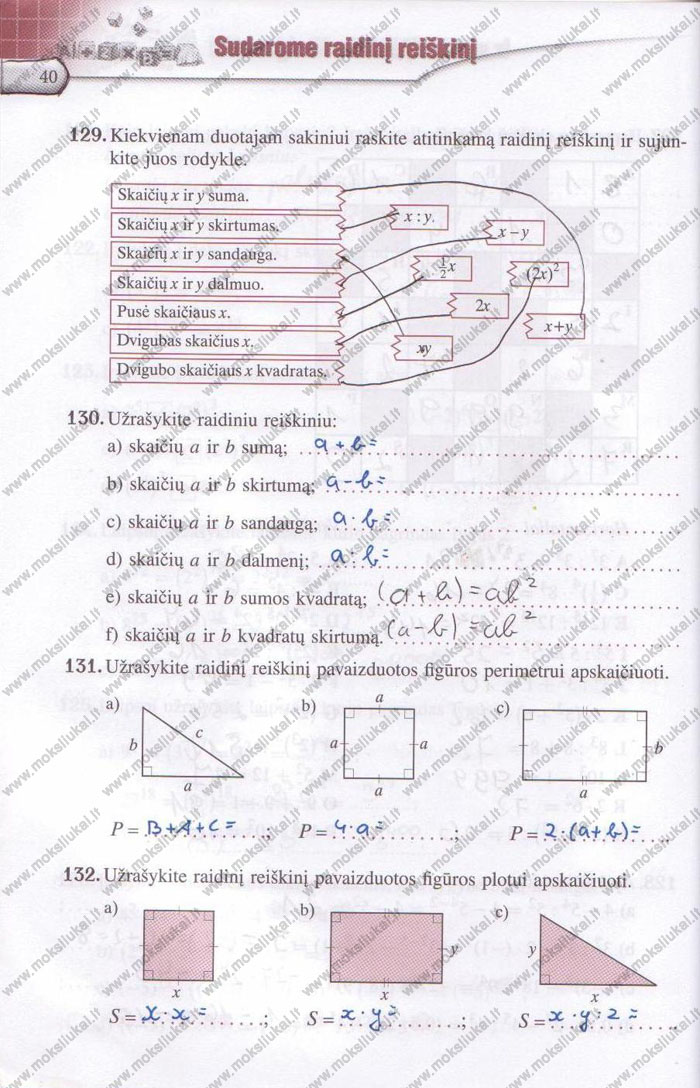 Sudarome raidinį reiškinį
40
129. Kiekvienam duotajam sakiniui raskite atitinkamą raidinį reiškinį ir sujun-
kite juos rodykle.
Skaičių x ir y suma.
Skaičių x ir y skirtumas.
Skaičių x ir y sandauga.
Skaičių x ir y dalmuo.
Pusė skaičiaus x.
Dvigubas skaičius x.
Dvigubo skaičiaus x kvadratas.
x : y.
x – y
½x
(2x)²
2x
x+y
xy
130. Užrašykite raidiniu reiškiniu:
a) skaičių a ir b sumą; a + b =
b) skaičių a ir b skirtumą; a - b =
c) skaičių a ir b sandaugą; a · b =
d) skaičių a ir b dalmenį; a : b =
e) skaičių a ir b sumos kvadratą; (a + b) = ab²
f) skaičių a ir b kvadratų skirtumą. (a - b) = ab²
131. Užrašykite raidinį reiškinį pavaizduotos figūros perimetrui apskaičiuoti.
a) b) c)
b c a
a a a a
b a
P = B+A+C = ; P = 4·a = ; P = 2·(a+b) =
132. Užrašykite raidinį reiškinį pavaizduotos figūros plotui apskaičiuoti.
a) b) c)
x y x y x
S = x · x = ; S = x · y = ; S = x · y : 2 =
www.moksliukai.lt